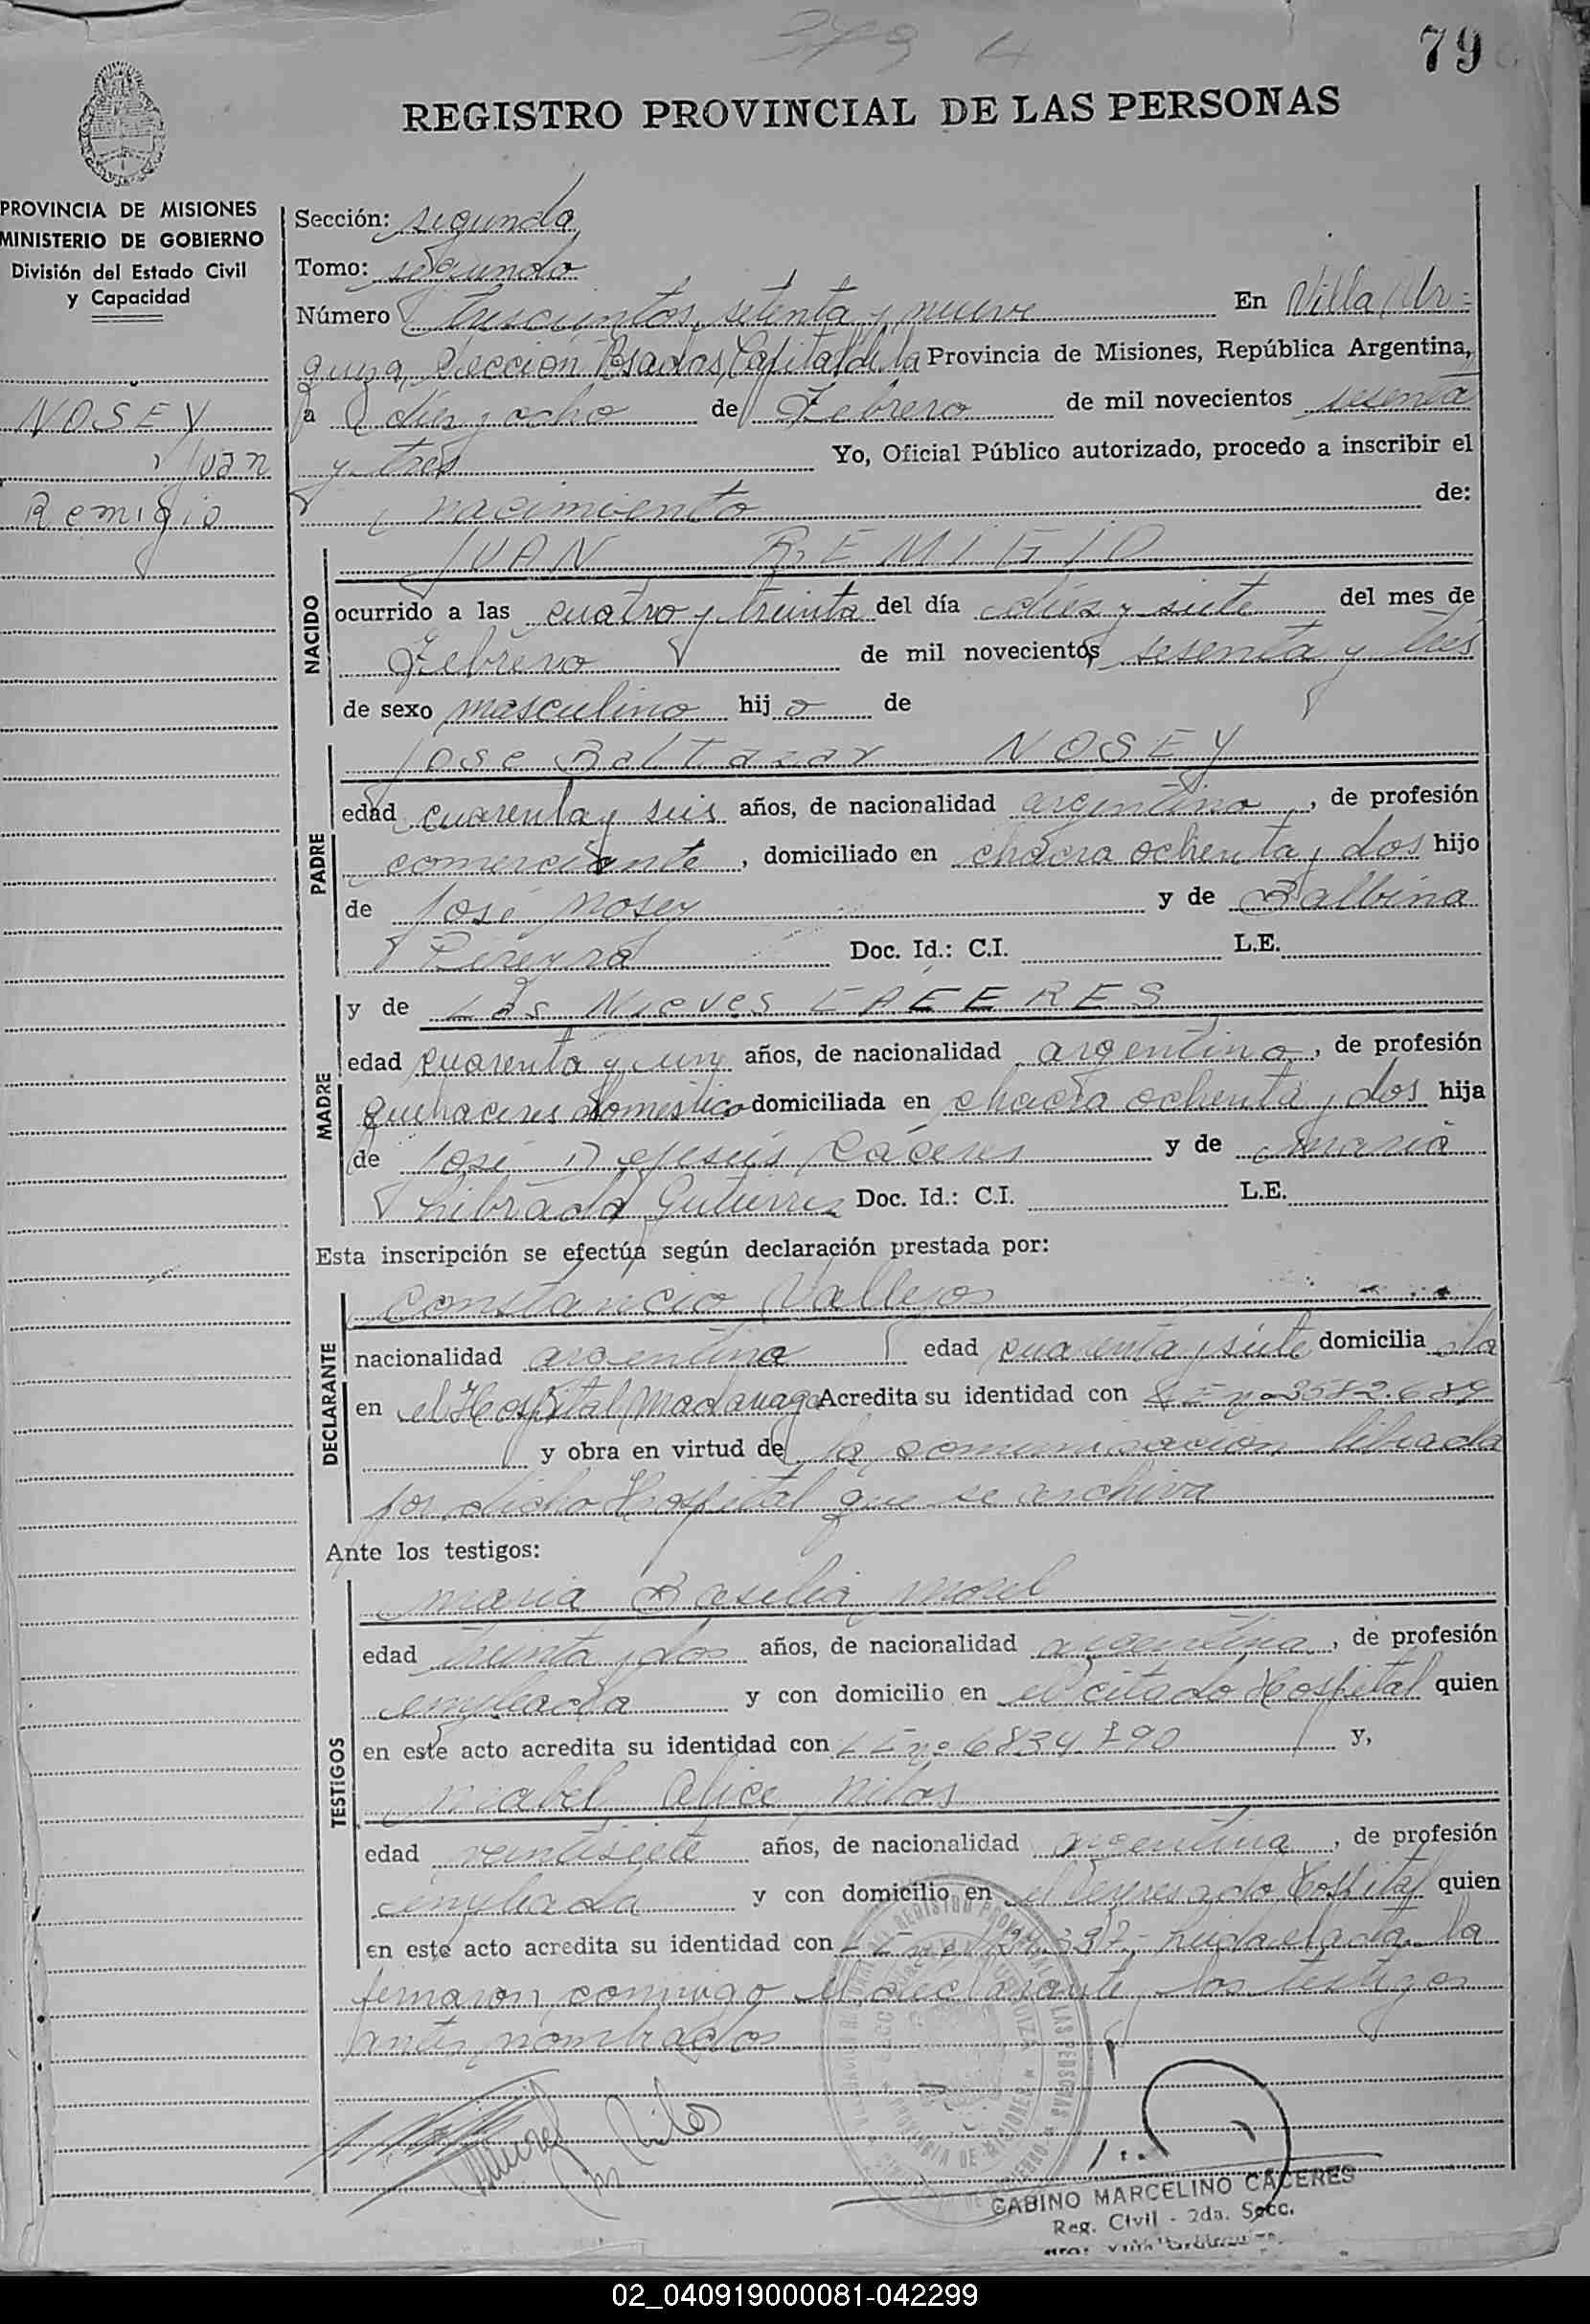 379
79
REGISTRO PROVINCIAL DE LAS PERSONAS
PROVINCIA DE MISIONES
MINISTERIO DE GOBIERNO
División del Estado Civil
y Capacidad
NOSEY
Juan
Remigio
Sección: segunda
Tomo: segundo
Número trescientos setenta y nueve En Villa Ur=
quiza, Sección Posadas, Capital de la Provincia de Misiones, República Argentina,
a diez y ocho de Febrero de mil novecientos sesenta
y tres Yo, Oficial Público autorizado, procedo a inscribir el
nacimiento de:
NACIDO
JUAN REMIGIO
ocurrido a las cuatro y treinta del día diez y siete del mes de
Febrero de mil novecientos sesenta y tres
de sexo masculino hijo de
PADRE
Jose Baltazar NOSEY
edad cuarenta y seis años, de nacionalidad argentina, de profesión
comerciante, domiciliado en chacra ochenta y dos hijo
de José Nosey y de Balbina
Pereyra Doc. Id.: C.I. L.E.
MADRE
y de Las Nieves CACERES
edad cuarenta y un años, de nacionalidad argentina, de profesión
quehaceres domestico domiciliada en chacra ochenta y dos hija
de José Dejesús Cáceres y de Maria
Librada Gutierrez Doc. Id.: C.I. L.E.
Esta inscripción se efectúa según declaración prestada por:
DECLARANTE
Constancio Vallejos
nacionalidad argentina edad cuarenta y siete domiciliado
en el Hospital Madariaga Acredita su identidad con L E nº 3582.689
y obra en virtud de la comunicación librada
por dicho Hospital que se archiva
Ante los testigos:
TESTIGOS
Maria Basilia Morel
edad treinta y dos años, de nacionalidad argentina, de profesión
empleada y con domicilio en el citado Hospital quien
en este acto acredita su identidad con L E nº 6834790 y,
Mabel Alice Nilos
edad veintisiete años, de nacionalidad argentina, de profesión
empleada y con domicilio en el Hospital quien
en este acto acredita su identidad con Leida el acta la
firmaron conmigo el declarante y los testigos
antes nombrados
GABINO MARCELINO CACERES
Reg. Civil - 2da. Secc.
02_040919000081-042299